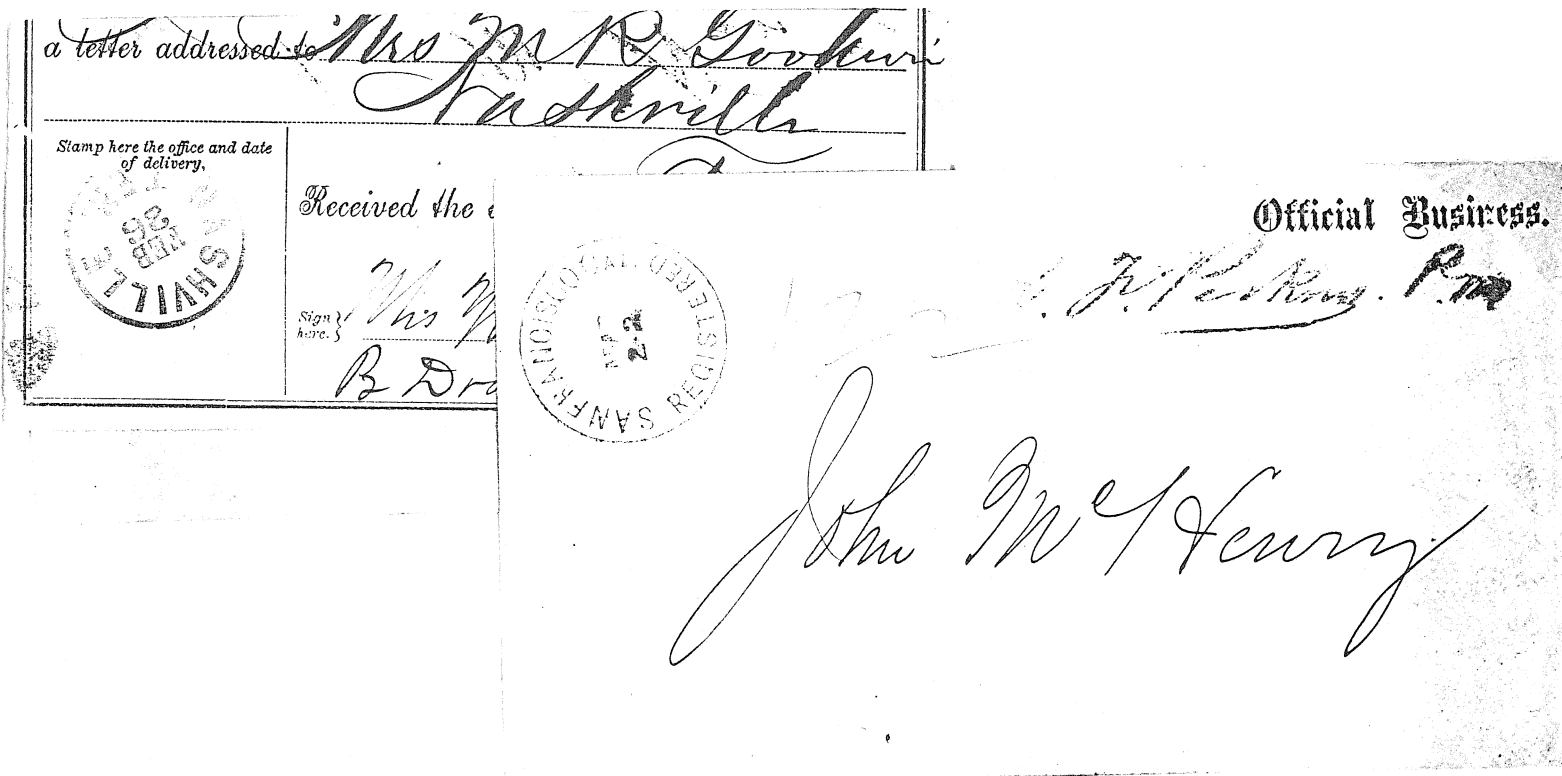 a letter addressed to Mrs M R Goodwin
Nashville
Stamp here the office and date
of delivery,
NASHVILLE TENN.
FEB
26
Received the
Sign
here.
B
Official Business.
P.M
SAN FRANCISCO, CAL. REGISTERED
2-2
John McHenry